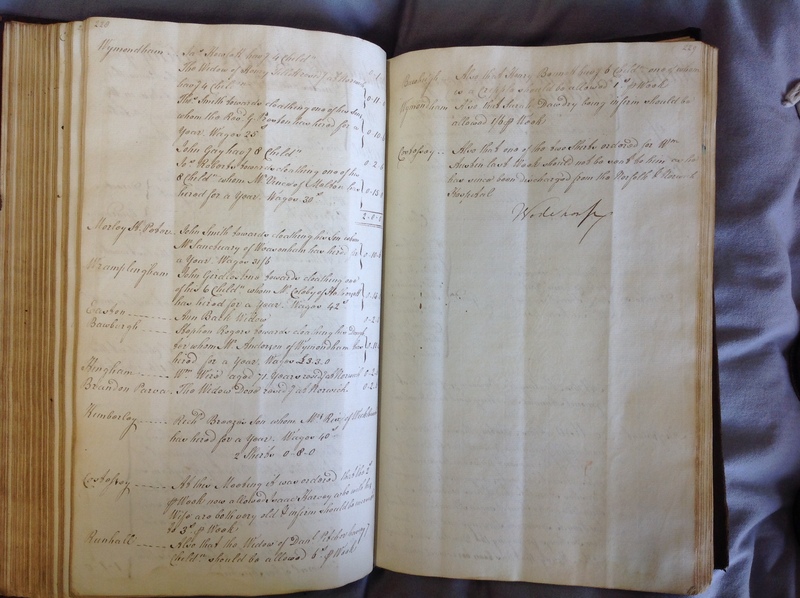 220
Wymondham .. Jas. Howsell hav.g 4 Childn.
The Widow of Henry
hav.g 4 Childn.
Thos. Smith towards cloathing one of his Sons
whom the Revd. Mr. has hired for a
Year. Wages 25s 0-10-
John Gay hav.g 8 Childn. 0-2-
Jas. Roberts towards cloathing one of his
8 Childn. whom Mr. of has
hired for a Year. Wages 30s 0-10-
2-0-0
Morley St. Peter .. John Smith towards cloathing his Son whom
Mr. Sanctuary of has hired for
a Year. Wages 31/6 0-10-
Wramplingham John towards cloathing one
of his 6 Childn. whom Mr. Colby of
has hired for a Year. Wages 42s 0-10-
Easton Ann Bach Widow 0-2-
Bawburgh Stephen Rogers towards cloathing his Daugr.
for whom Mr. Anderson of Wymondham has
hired for a Year. Wages £3.3.0
Hingham Wm. Weid aged 71 Years resid.g at Norwich 0-2-
Brandon Parva .. The Widow Dove resid.g at Norwich. 0-2-
Kimberley Richd. Son whom Mr. of
has hired for a Year. Wages 40s
2 Shirts 0-8-0
Costessey At this Meeting it was ordered that the 2s
p Week now allowed Isaac Harvey who with his
Wife are both very old & infirm should be
to 3s. p Week
Runhall Also that the Widow of Danl. hav.g 7
Childn. should be allowed 6s. p Week
221
Bawburgh .. Also that Henry hav.g 6 Childn. one of whom
is a Cripple should be allowed 1s. p Week
Wymondham Also that Sarah Dawdry being infirm should be
allowed 1/6 p Week
Costessey .. Also that one of the two Shirts ordered for Wm.
Austin last Week should not be sent to him as he
has since been discharged from the Norfolk & Norwich
Hospital
Wodehouse